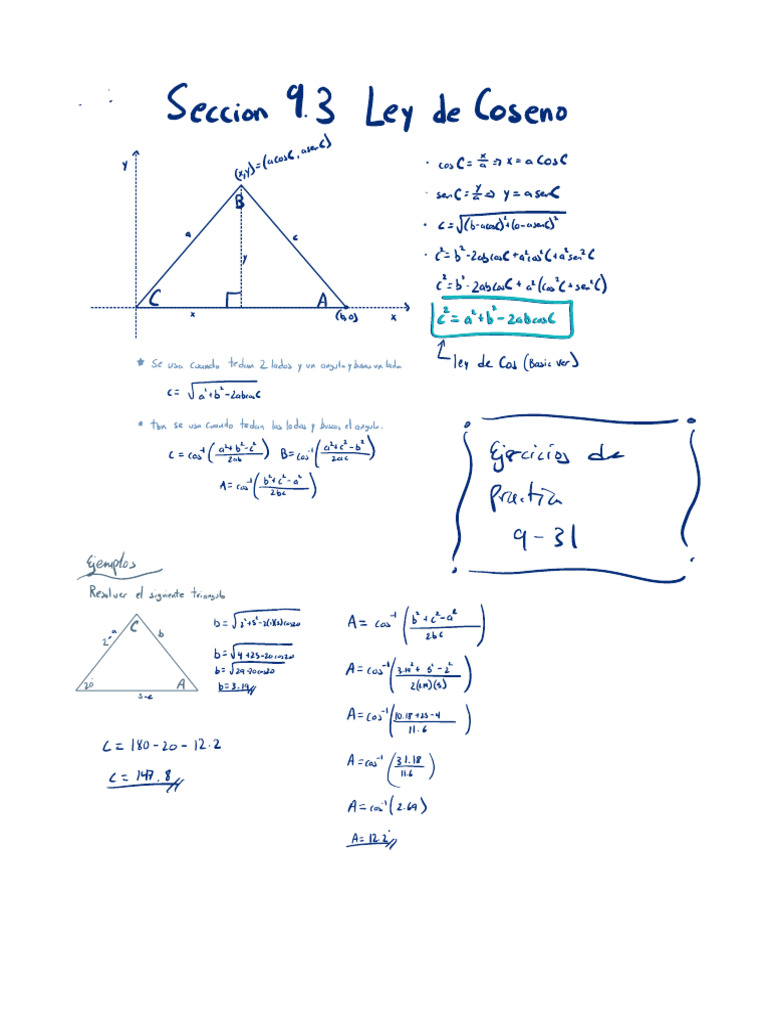 Seccion 9.3 Ley de Coseno
y
(x,y)=(acosC, asenC)
B
a
c
y
C
A
x
(b,0)
x
• cosC = x/a ⇒ x = a CosC
• senC = y/a ⇒ y = asenC
• c = √((b-acosC)²+(0-asenC)²)
• c² = b²-2abcosC+a²cos²C+a²sen²C
c² = b²-2abcosC + a²(cos²C+sen²C)
c² = a²+b²-2abcosC
ley de Cos (Basic ver)
* Se usa cuando tedan 2 lados y un angulo y busca un lado
c = √(a²+b²-2abcosC)
• tbn se usa cuando tedan los lados y buscas el angulo.
C = cos⁻¹((a²+b²-c²)/2ab) B = cos⁻¹((a²+c²-b²)/2ac)
A = cos⁻¹((b²+c²-a²)/2bc)
Ejercicios de
Practica
9-31
Ejemplos
Resolver el siguiente triangulo
C
2-a
b
20°
A
5-c
b = √(4+25-20cos20)
b = √(29-20cos20)
b = 3.19
C = 180-20-12.2
C = 147.8
A = cos⁻¹((b²+c²-a²)/2bc)
A = cos⁻¹((3.19²+5²-2²)/2(3.19)(5))
A = cos⁻¹((10.18+25-4)/11.6)
A = cos⁻¹(31.18/11.6)
A = cos⁻¹(2.69)
A = 12.2°